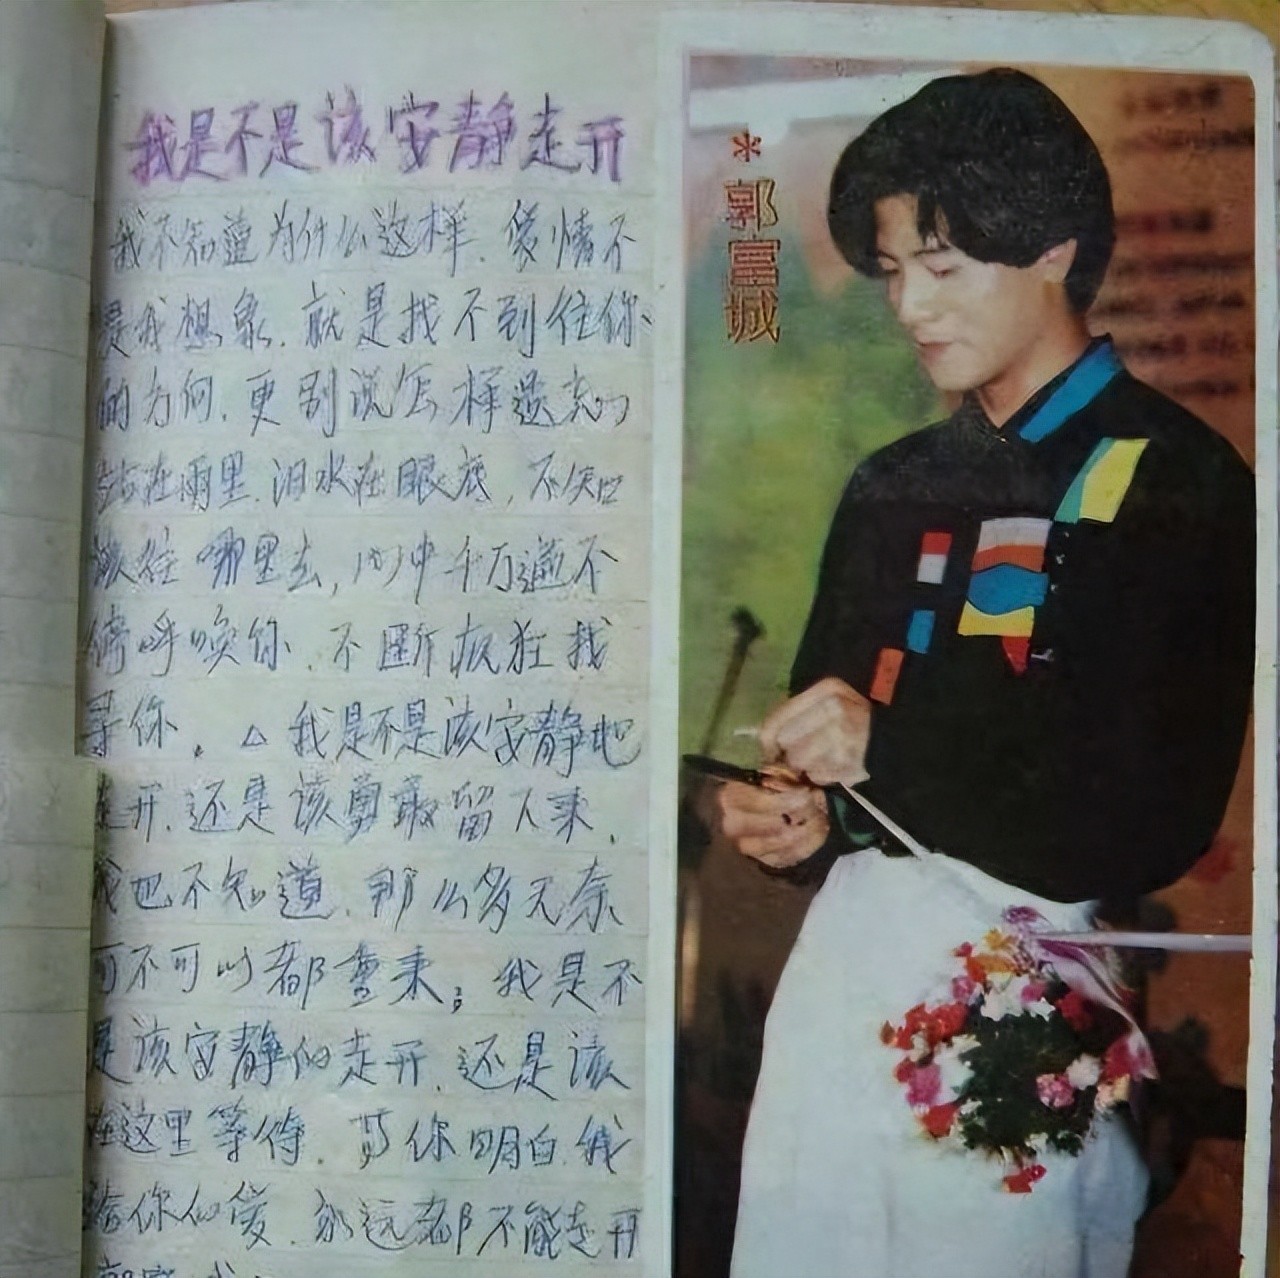 我是不是该安静走开
我不知道为什么这样.爱情不
是我想象.就是找不到往你
的为何.更别说怎样遗忘
站在雨里.泪水在眼底,不知
该往哪里去,心中千万遍不
停呼唤你.不断疯狂找
寻你.△我是不是该安静地
走开.还是该勇敢留下来.
我也不知道.那么多无奈
可不可以都重来;我是不
是该安静的走开.还是该
在这里等待.等你明白我
给你的爱.永远都不能走开
*郭富城